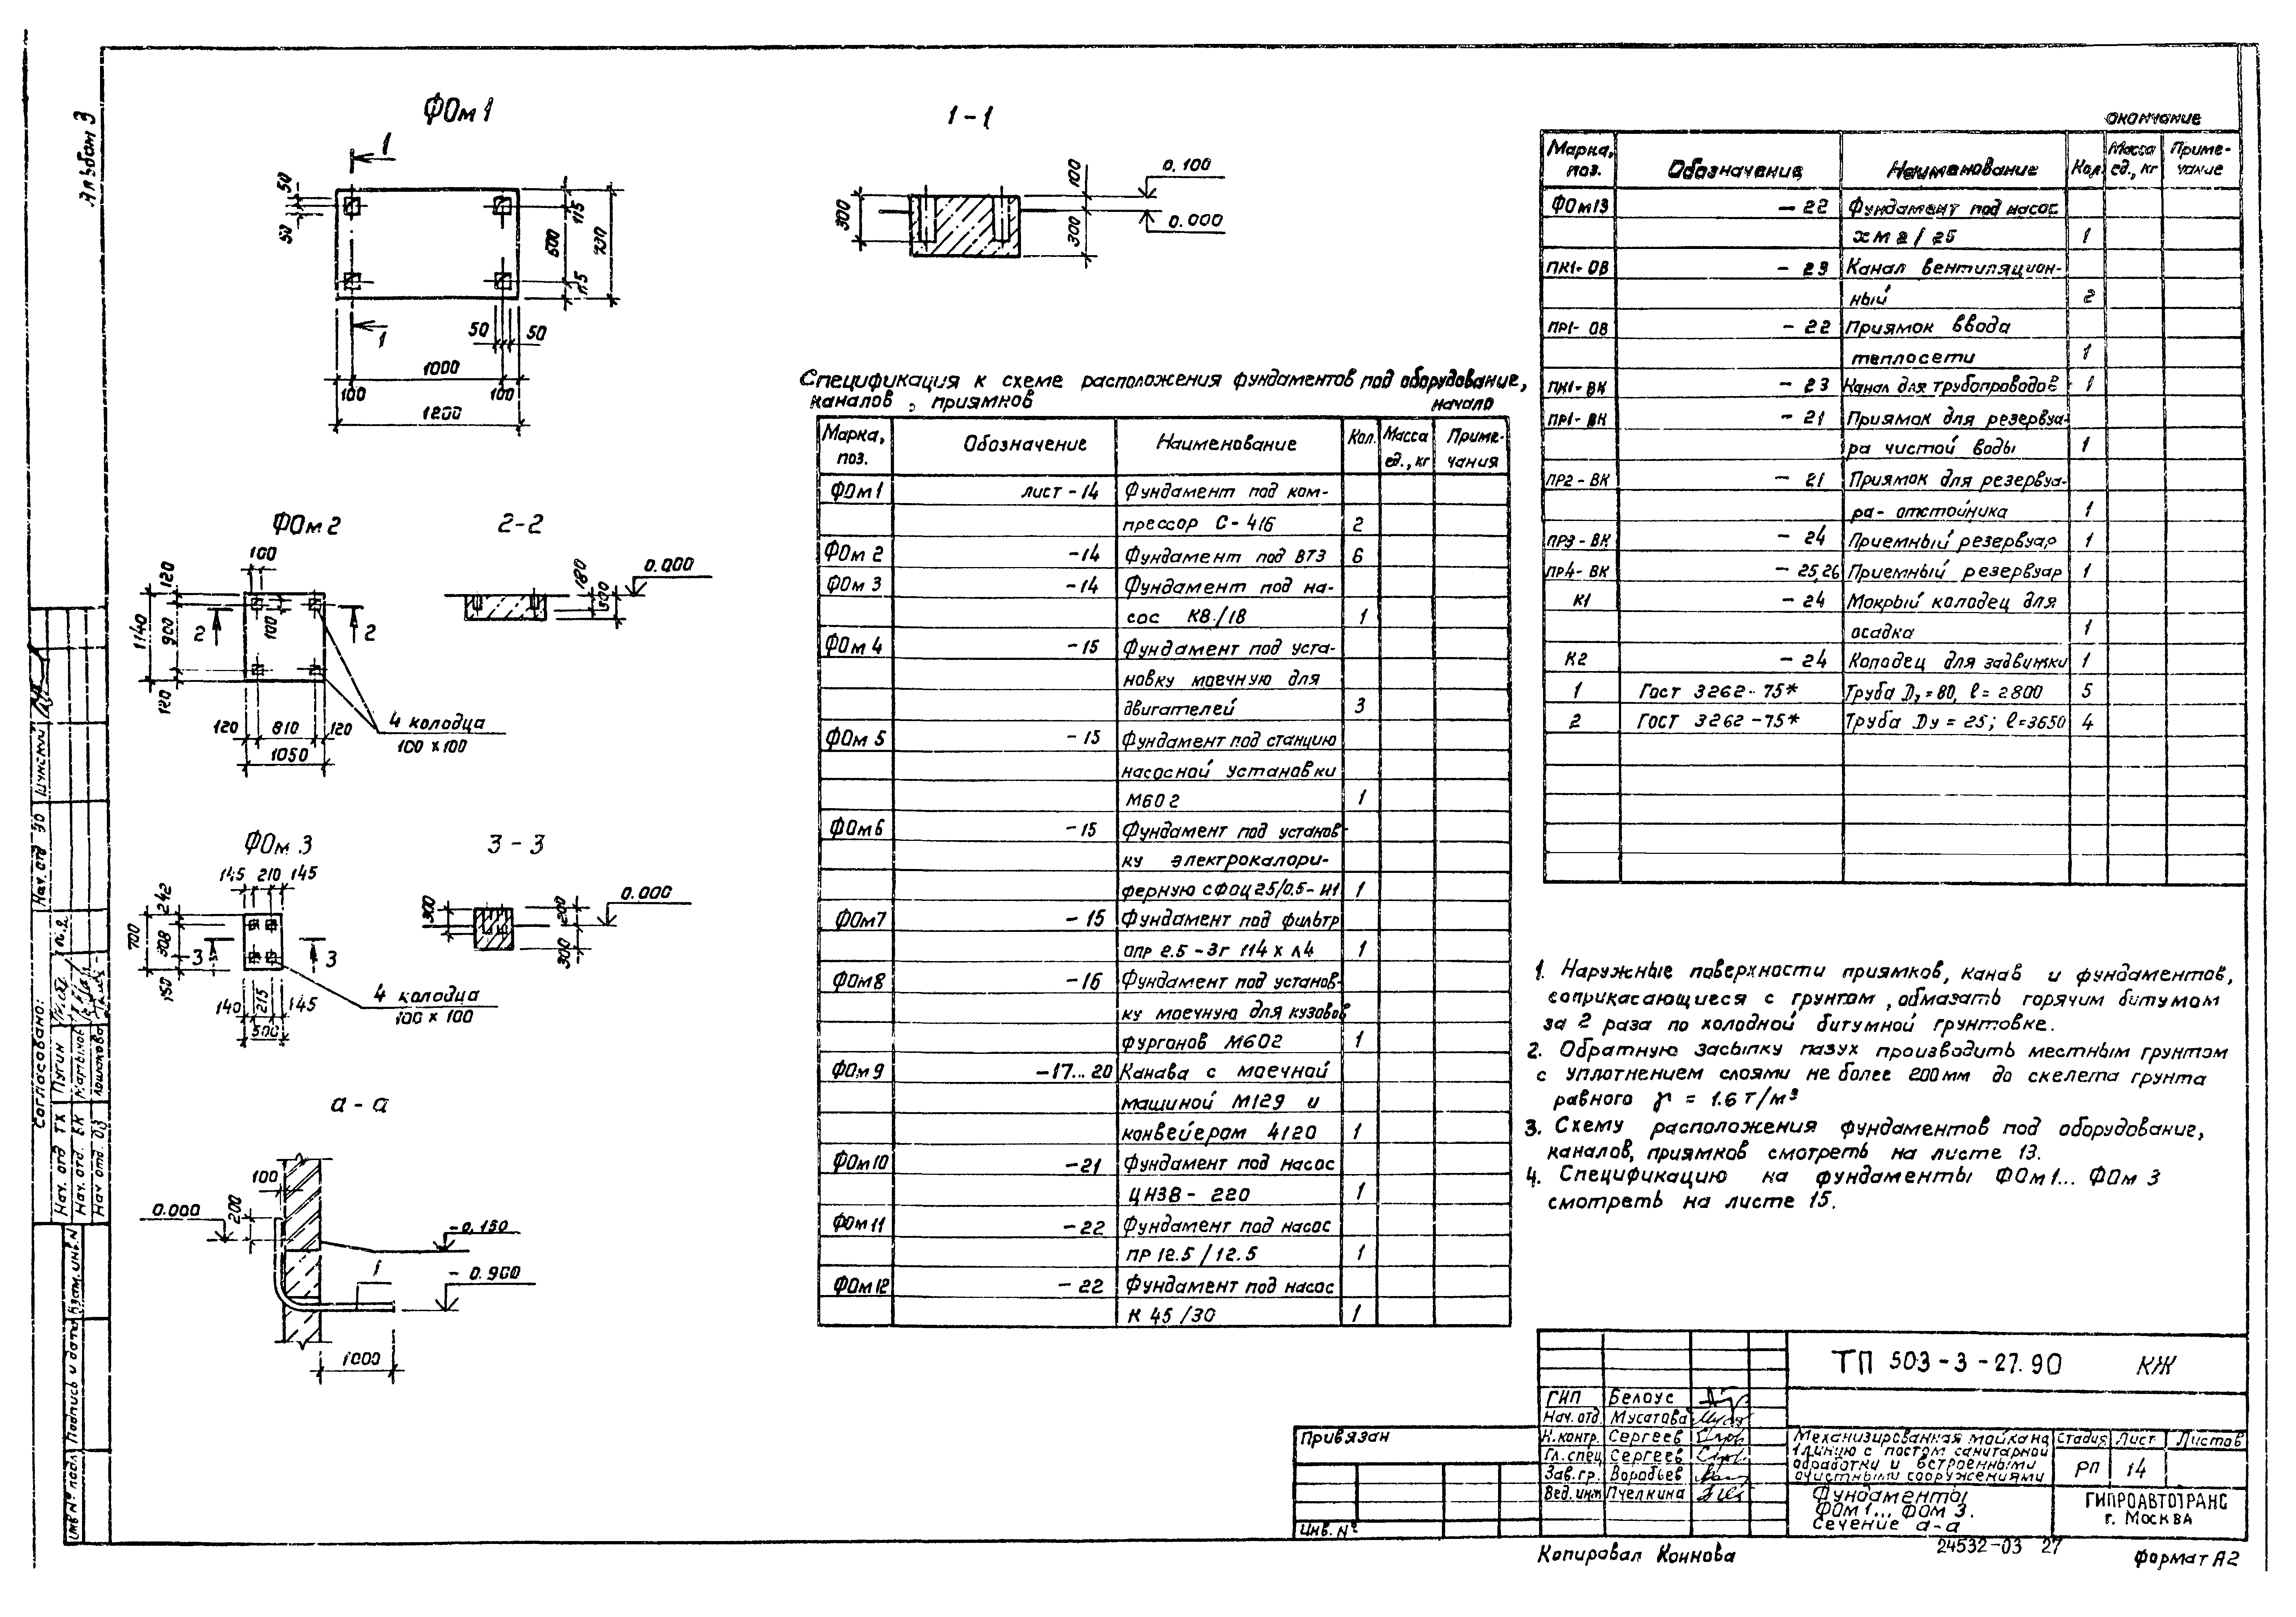 Альбом 3
ФОм 1
1
50
50
115
500
115
730
1
50
50
1000
100
100
1200
1-1
300
100
300
0.100
0.000
ФОм 2
100
120
900
1140
120
2
100
2
120
810
120
1050
4 колодца
100 x 100
2-2
180
300
0.000
ФОм 3
145 210 145
242
308
700
150
3
3
140 215 145
500
4 колодца
100 x 100
3-3
300
200
300
0.000
а-а
100
200
0.000
-0.150
-0.900
1
1000
Спецификация к схеме расположения фундаментов под оборудование,
каналов, приямков
начало
Марка, поз. Обозначение Наименование Кол. Масса ед., кг Приме-чания
ФОм 1 лист-14 Фундамент под ком-
прессор С-416 2
ФОм 2 -14 Фундамент под ВТЗ 6
ФОм 3 -14 Фундамент под на-
сос К8/18 1
ФОм 4 -15 Фундамент под уста-
новку моечную для
двигателей 3
ФОм 5 -15 Фундамент под станцию
насосной установки
М602 1
ФОм 6 -15 Фундамент под установ-
ку электрокалори-
ферную сФОЦ 25/0,5-И1 1
ФОм 7 -15 Фундамент под фильтр
1
ФОм 8 -16 Фундамент под установ-
ку моечную для кузовов
фургонов М602 1
ФОм 9 -17...20 Канава с моечной
машиной М129 и
конвейером 4120 1
ФОм 10 -21 Фундамент под насос
ЦНЗВ-220 1
ФОм 11 -22 Фундамент под насос
ПР 12.5/12.5 1
ФОм 12 -22 Фундамент под насос
К 45/30 1
окончание
Марка, поз. Обозначение Наименование Кол. Масса ед., кг Приме-чание
ФОм 13 -22 Фундамент под насос
ХМ 2/25 1
ПК1-ОВ -23 Канал вентиляцион-
ный 2
ПР1-ОВ -22 Приямок ввода
теплосети 1
ПК1-ВК -23 Канал для трубопроводов 1
ПР1-ВК -21 Приямок для резервуа-
ра чистой воды 1
ПР2-ВК -21 Приямок для резервуа-
ра-отстойника 1
ПР3-ВК -24 Приемный резервуар 1
ПР4-ВК -25,26 Приемный резервуар 1
К1 -24 Мокрый колодец для
осадка 1
К2 -24 Колодец для задвижки 1
1 Гост 3262-75* Труба Dу=80, ℓ=2800 5
2 ГОСТ 3262-75* Труба Dу=25; ℓ=3650 4
1. Наружные поверхности приямков, канав и фундаментов,
соприкасающиеся с грунтом, обмазать горячим битумом
за 2 раза по холодной битумной грунтовке.
2. Обратную засыпку пазух производить местным грунтом
с уплотнением слоями не более 200мм до скелета грунта
равного γ = 1.6 т/м³
3. Схему расположения фундаментов под оборудование,
каналов, приямков смотреть на листе 13.
4. Спецификацию на фундаменты ФОм 1... ФОм 3
смотреть на листе 15.
ТП 503-3-27.90 КЖ
ГИП Белоус
Нач. отд. Мусатова
Н.контр. Сергеев
Гл.спец Сергеев
Зав.гр. Воробьев
Вед.инж Пчелкина
Механизированная мойка на
1 линию с постом санитарной
обработки и встроенными
очистными сооружениями
Стадия Лист Листов
РП 14
Фундаменты
ФОм 1... ФОм 3.
Сечение а-а
ГИПРОАВТОТРАНС
г. Москва
Привязан
Инв. №
Копировал Коннова
24532-03 27
Формат А2
Согласовано:
Нач. отд ТХ Пугин
Нач. отд. ВК Мартынов
Нач отд. ОЗ
Нач. отд ЭО Шунский
Взам. инв. №
Подпись и дата
Инв. № подл.